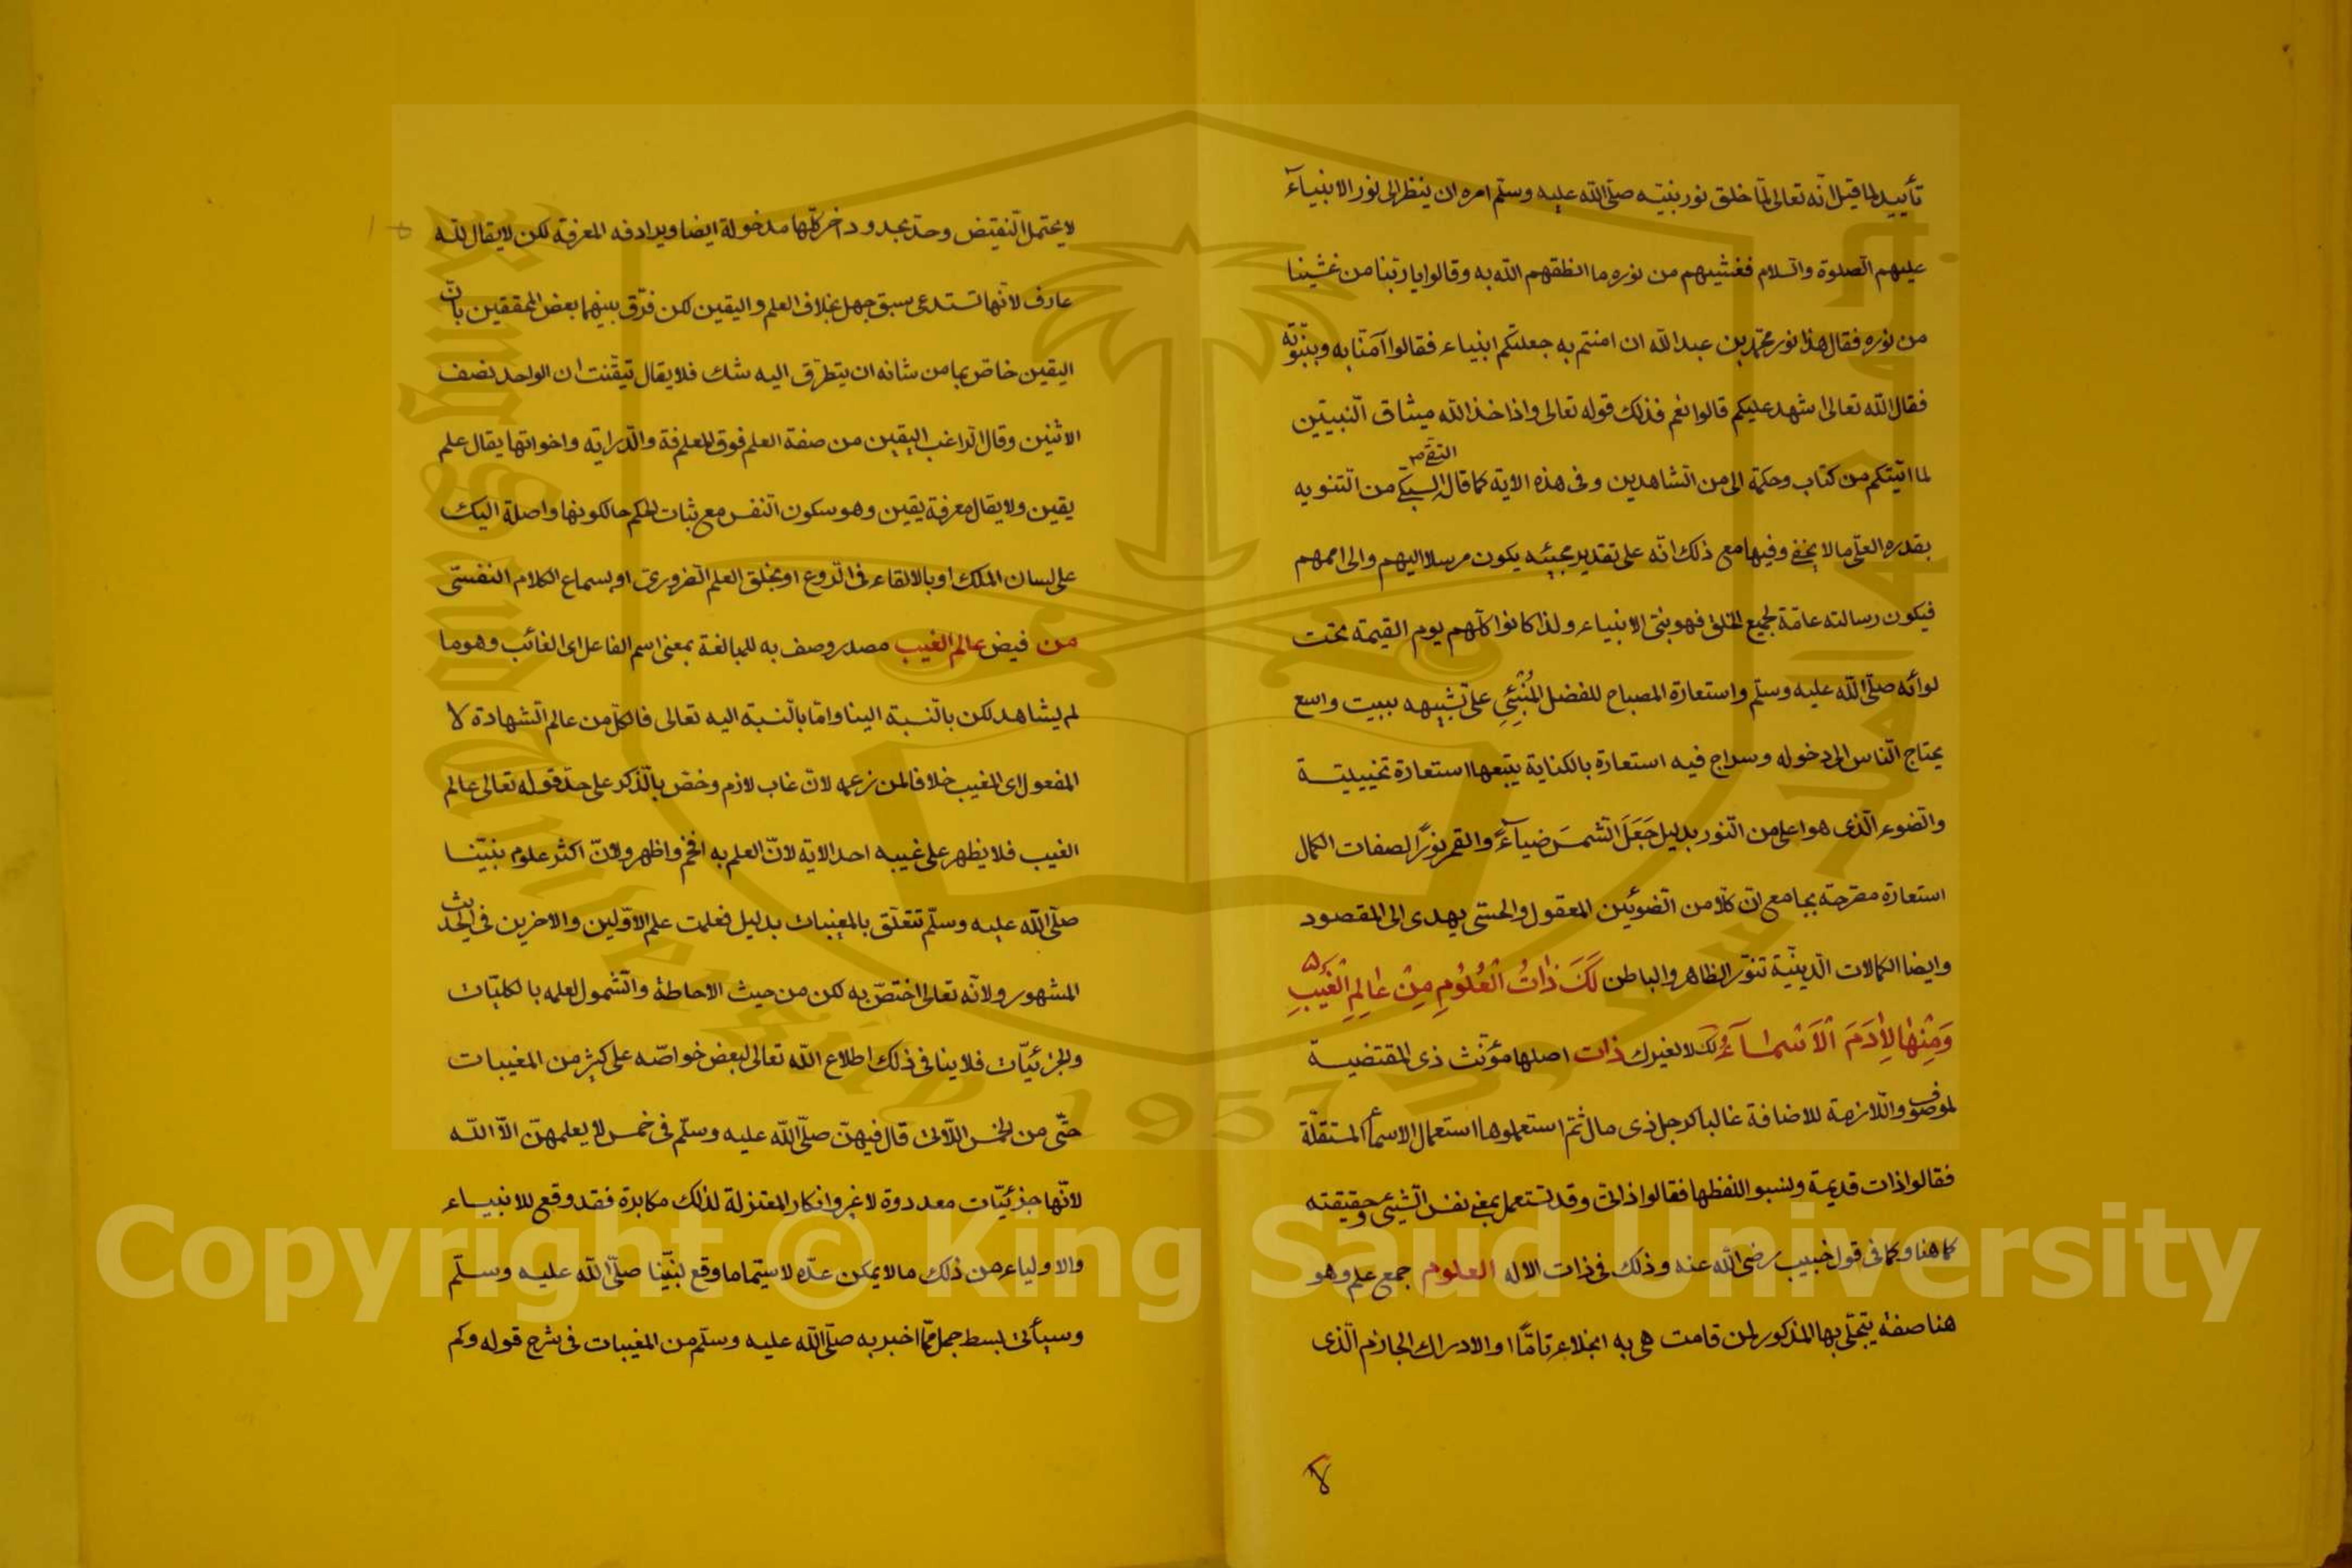 تأييد لما قيل انّه تعالى لمّا خلق نور نبيّه صلّى اللّه عليه وسلّم امره ان ينظر الى نور الانبيآء
عليهم الصّلوة والسّلام فغشيهم من نوره ما انطقهم اللّه به وقالوا يا ربّنا من غشينا
من نوره فقال هذا نور محمّد بن عبد اللّه ان امنتم به جعلتكم انبياء فقالوا آمنّا به وبنبوّته
فقال اللّه تعالى اشهد عليكم قالوا نعم فذلك قوله تعالى واذ اخذ اللّه ميثاق النّبيّين
لما اتيتكم من كتاب وحكمة الى من الشّاهدين وفى هذه الاية كما قال التقى السبكى من التنويه
بقدره العلّى ما لا يخفى وفيها مع ذلك انّه على تقدير مجيئه يكون مرسلا اليهم والى اممهم
فيكون رسالته عامّة لجميع الخلق فهو نبىّ الانبياء ولذا كانوا كلّهم يوم القيمة تحت
لوائه صلّى اللّه عليه وسلّم واستعارة المصباح للفضل المُنْبِئِي على تشبيهه ببيت واسع
يحتاج النّاس الى دخوله وسراج فيه استعارة بالكناية يتبعها استعارة تخييليّة
والضوء الّذى هو اعلى من النّور بدليل جَعَلَ الشّمسَ ضيآءً والقمر نورًا لصفات الكمال
استعارة مصرّحة بجامع انّ كلّا من الضوئين المعقول والحسّى يهدى الى المقصود
وايضا الكمالات الدّينيّة تنوّر الظاهر والباطن لَكَ ذٰاتُ الْعُلُومِ مِنْ عٰالِمِ الْغَيْبِ
وَمِنْهٰا لِاٰدَمَ الْاَسْمٰآءُ لك لا لغيرك ذات اصلها مؤنّث ذى المقتضية
لموصوف واللّازمة للاضافة غالبا كرجل ذى مال ثمّ استعملوها استعمال الاسماء المستقلّة
فقالوا ذات قديمة ونسبوا للفظها فقالوا ذاتى وقد تستعمل بمعنى نفس الشّيئى وحقيقته
كما هنا وكما فى قول خبيب رضى اللّه عنه وذلك فى ذات الاله العلوم جمع علم وهو
هنا صفة يتجلّى بها المذكور لمن قامت هى به انجلاء تامّا او الادراك الجازم الّذى
لا
لا يحتمل النّقيض وحدّ بحدود اخر كلّها مدخولة ايضا ويرادفه المعرفة لكن لا يقال للّه
عارف لانّها تستدعى سبق جهل بخلاف العلم واليقين لكن فرّق بينهما بعض المحققين بانّ
اليقين خاصّ بما من شانه ان يتطرّق اليه شك فلا يقال تيقّنت ان الواحد نصف
الاثنين وقال الرّاغب اليقين من صفة العلم فوق المعرفة والدّراية واخواتها يقال علم
يقين ولا يقال معرفة يقين وهو سكون النّفس مع ثبات الحكم حالكونها واصلة اليك
على لسان الملك او بالالقاء فى الرّوع او بخلق العلم الضّرورىّ او بسماع الكلام النفسىّ
من فيض عالم الغيب مصدر وصف به للمبالغة بمعنى اسم الفاعل اى الغائب وهو ما
لم يشاهد لكن بالنّسبة الينا وامّا بالنّسبة اليه تعالى فالكلّ من عالم الشّهادة لا
المفعول اى المغيب خلافا لمن زعمه لانّ غاب لازم وخصّ بالذّكر على حدّ قوله تعالى عالم
الغيب فلا يظهر على غيبه احدا الاية لانّ العلم به افخم واظهر ولانّ اكثر علوم نبيّنا
صلّى اللّه عليه وسلّم تتعلّق بالمغيبات بدليل فعلمت علم الاوّلين والاخرين فى الحديث
المشهور ولانّه تعالى اختصّ به لكن من حيث الاحاطة والشّمول لعلمه بالكليّات
والجزئيّات فلا ينافى ذلك اطلاع اللّه تعالى لبعض خواصّه على كثير من المغيبات
حتّى من الخمس اللّاتى قال فيهنّ صلّى اللّه عليه وسلّم فى خمس لا يعلمهنّ الّا اللّه
لانّها جزئيّات معدودة لا غير وانكار المعتزلة لذلك مكابرة فقد وقع للانبياء
والاولياء من ذلك ما لا يمكن عدّه لا سيّما ما وقع لنبيّنا صلّى اللّه عليه وسلّم
وسيأتى بسط جمل ممّا اخبر به صلّى اللّه عليه وسلّم من المغيبات فى شرح قوله وكم
Copyright © King Saud University
King Saud University
1957